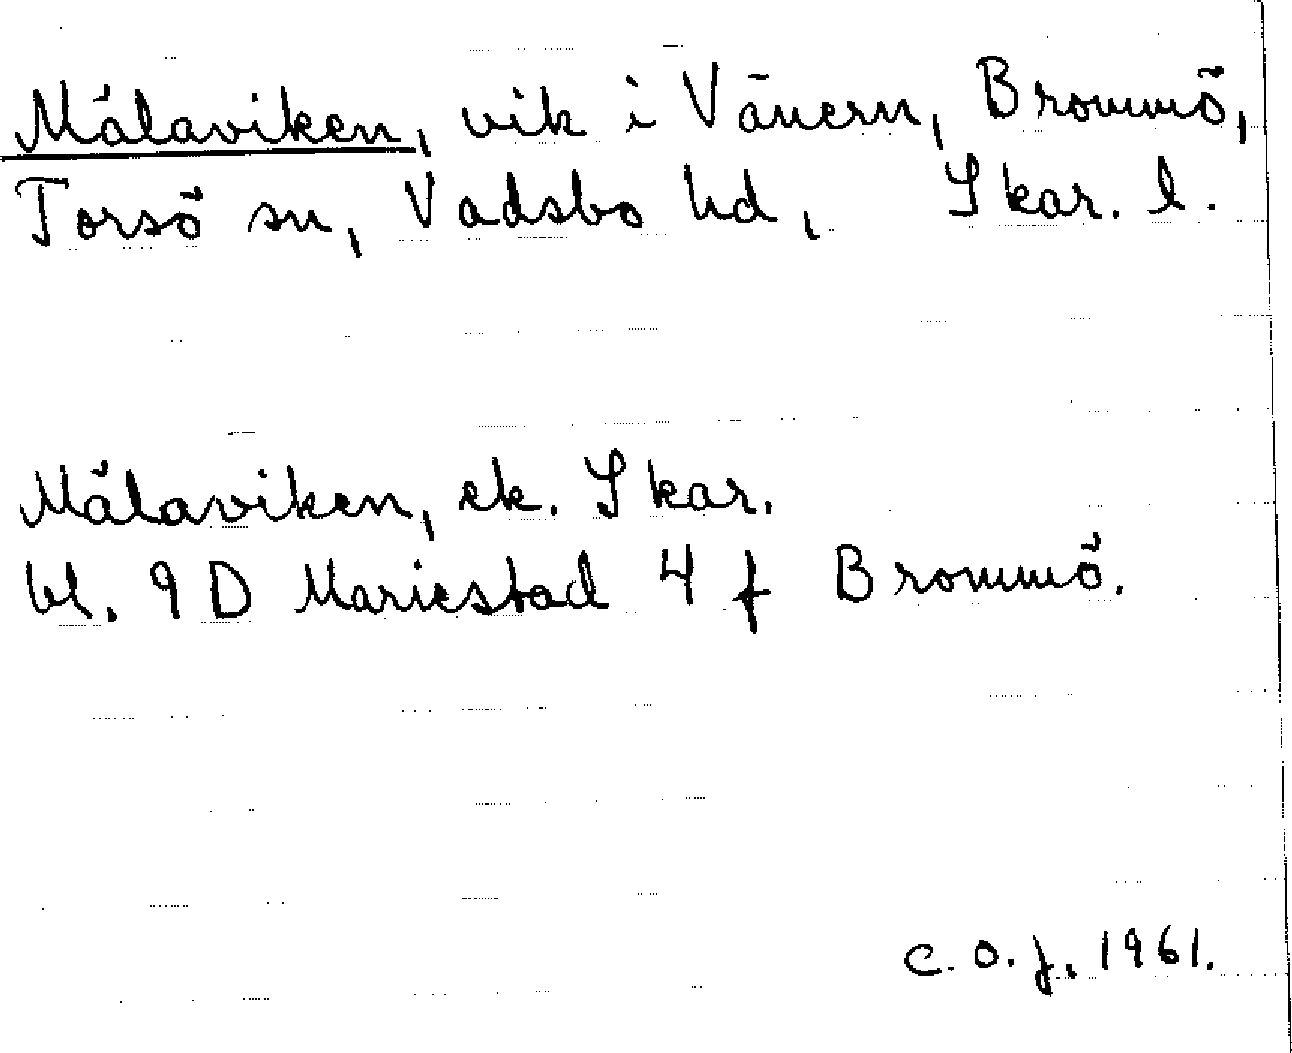 Målaviken, vik i Vänern, Brommö,
Torsö sn, Vadsbo hd, Skar. l.
Målaviken, ek. Skar.
bl. 9 D Mariestad 4 f Brommö.
C.O.J. 1961.